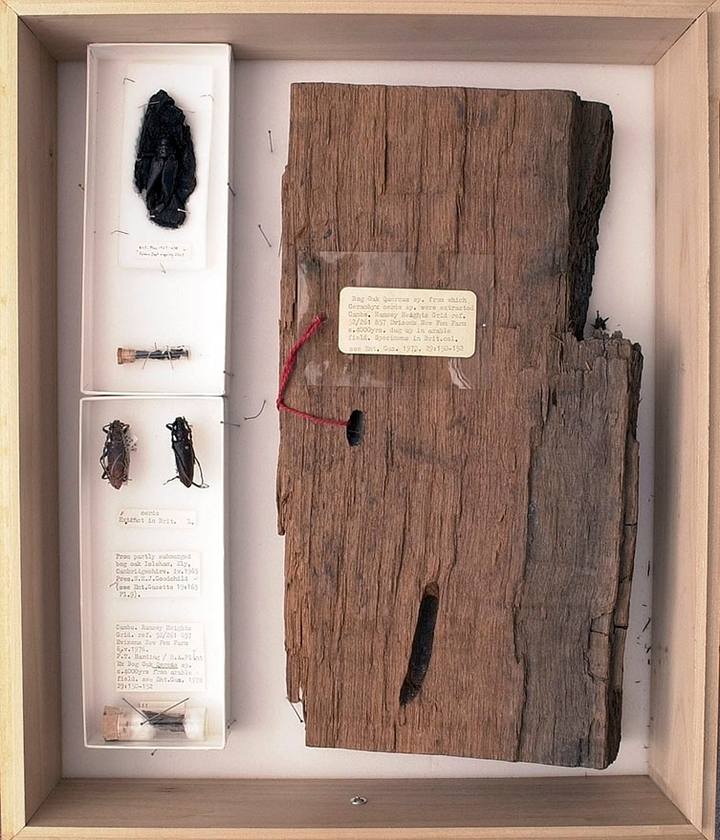 Bog Oak Quercus sp. from which
Cerambyx cerdo sp. were extracted
Cambs. Ramsey Heights Grid ref.
52/261 857 Evisons New Fen Farm
c.4000yrs. dug up in arable
field. Specimens in Brit.col.
see Ent. Gaz. 1978. 29:150-152
cerdo
Extinct in Brit.
From partly submerged
bog oak Isleham, Ely,
Cambridgeshire. iv.1965
Pres.
(see Ent.Gazette 19:165
Pl.9).
Cambs. Ramsey Heights
Grid. ref. 52/261 857
Evisons New Fen Farm
P.T. Harding / R.A.Plant
Ex Bog Oak Quercus sp.
c.4000yrs from arable
field. see Ent.Gaz. 1978
29:150-152